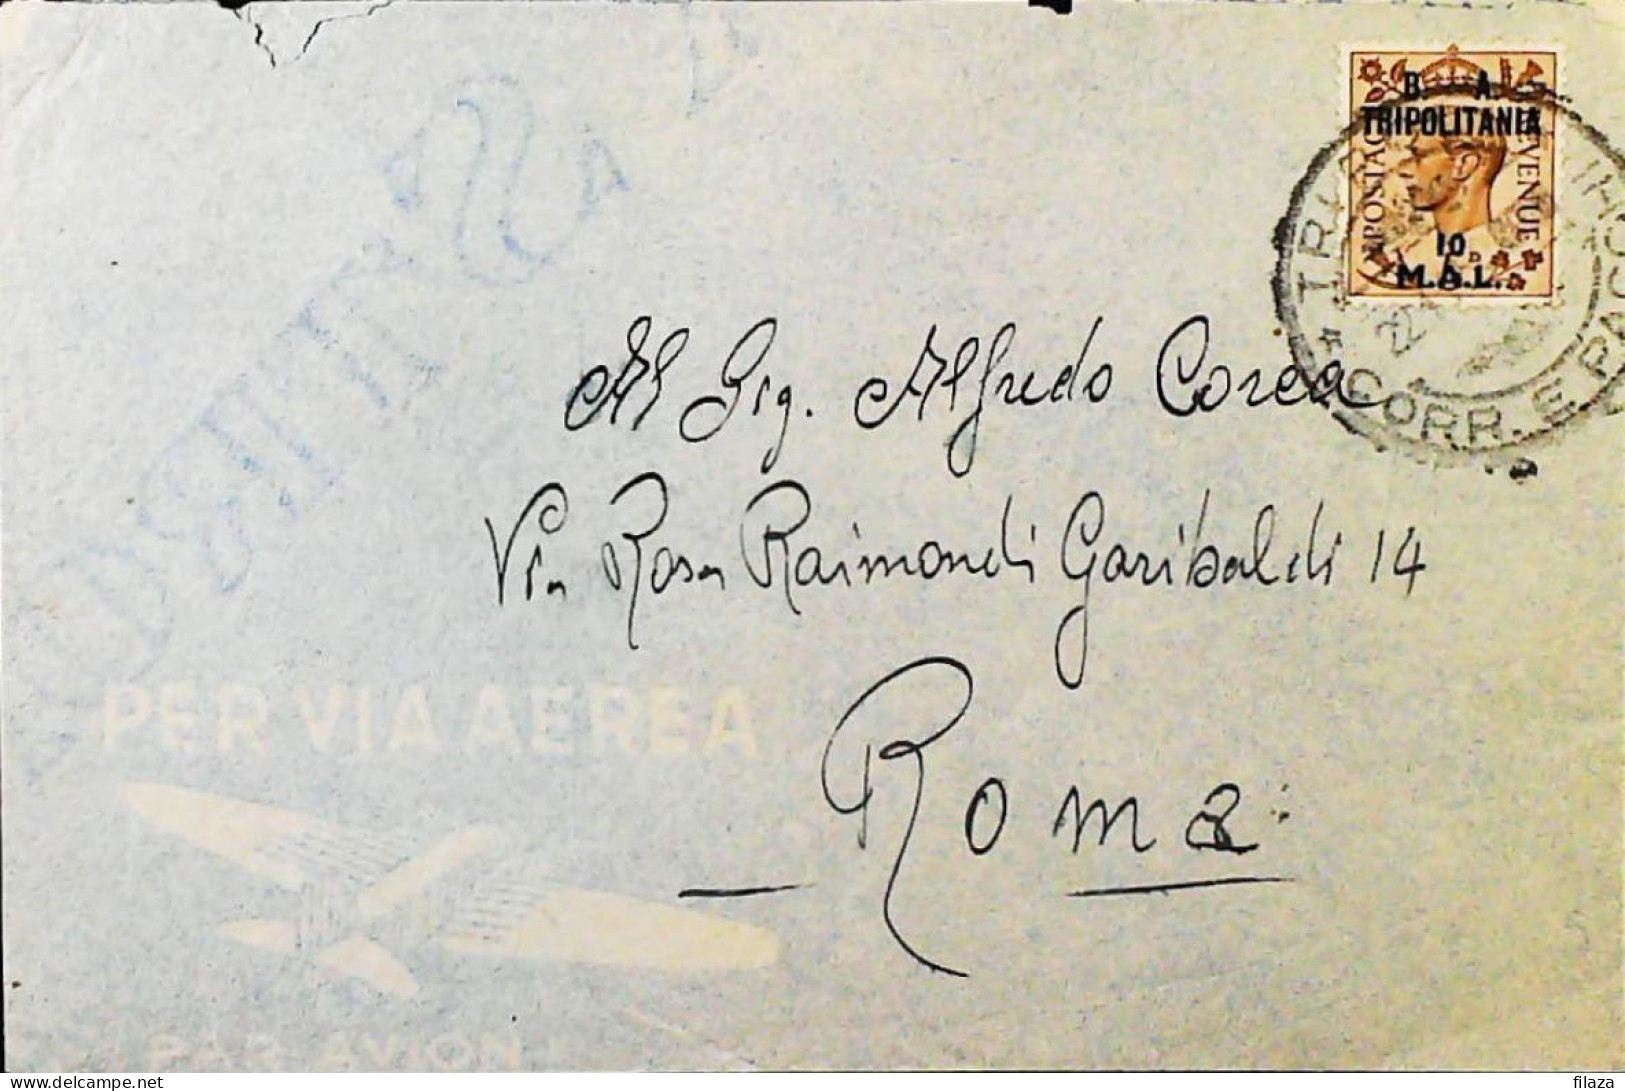 B. A.
TRIPOLITANIA
POSTAGE
REVENUE
10
M.A.L.
CORR. E PACCHI
Al Sig. Alfredo Corea
Via Rosa Raimondi Garibaldi 14
Roma
PER VIA AEREA
PAR AVION
delcampe.net
filaza